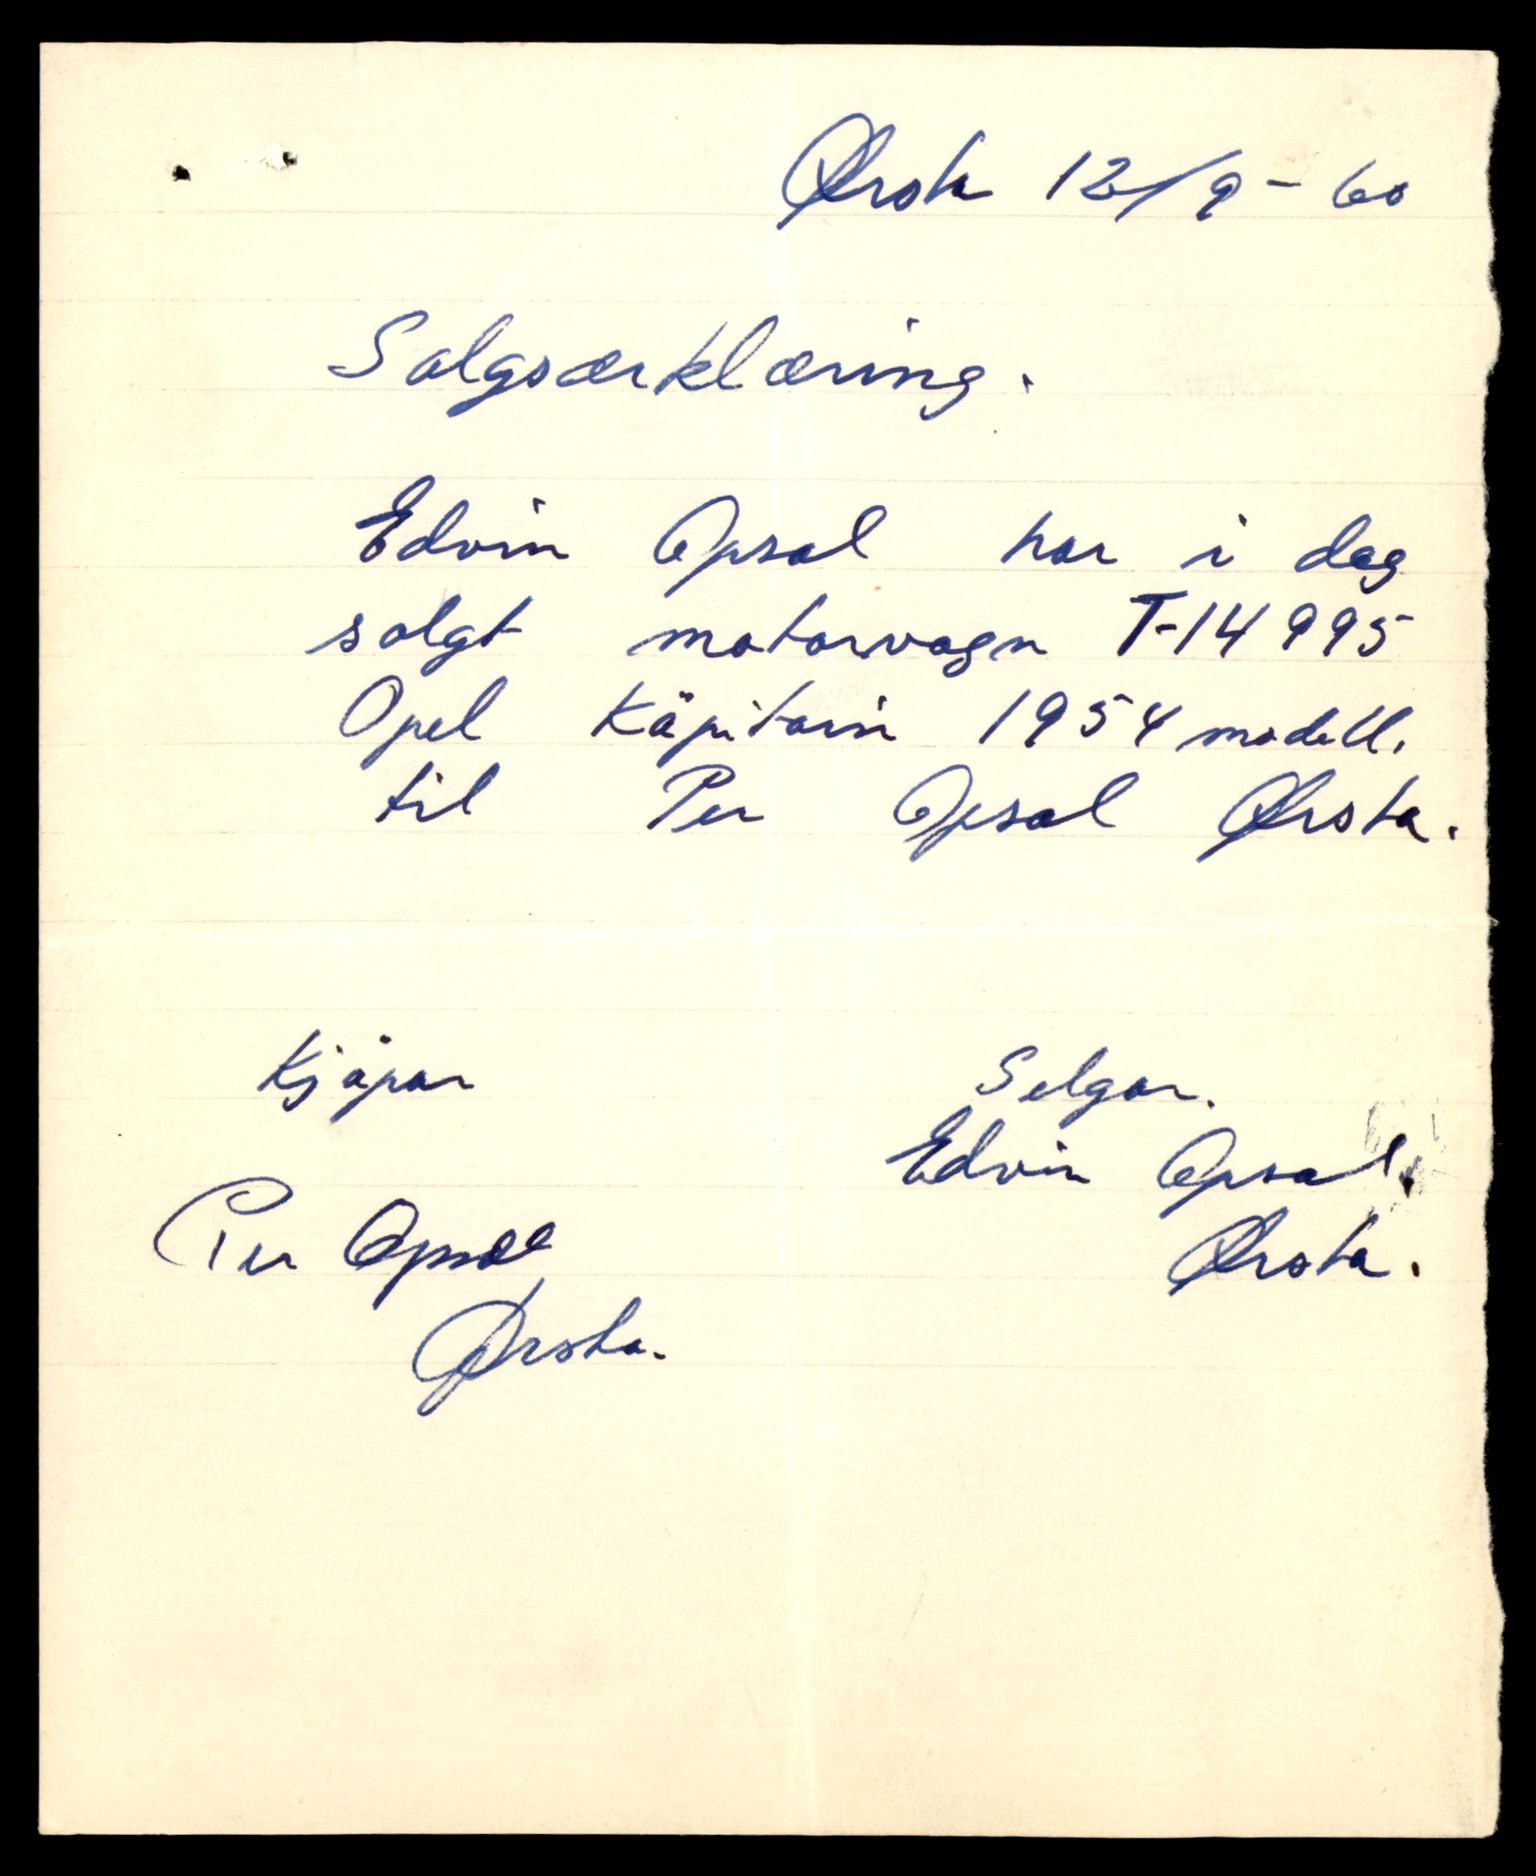 Ørsta 12/9-60
Salgsærklæring.
Edvin Opsal har i dag
solgt motorvogn T-14995
Opel Käpitain 1954 modell.
til Per Opsal Ørsta.
Kjöpar
Selgar.
Edvin Opsal.
Ørsta.
Per Opsal
Ørsta.